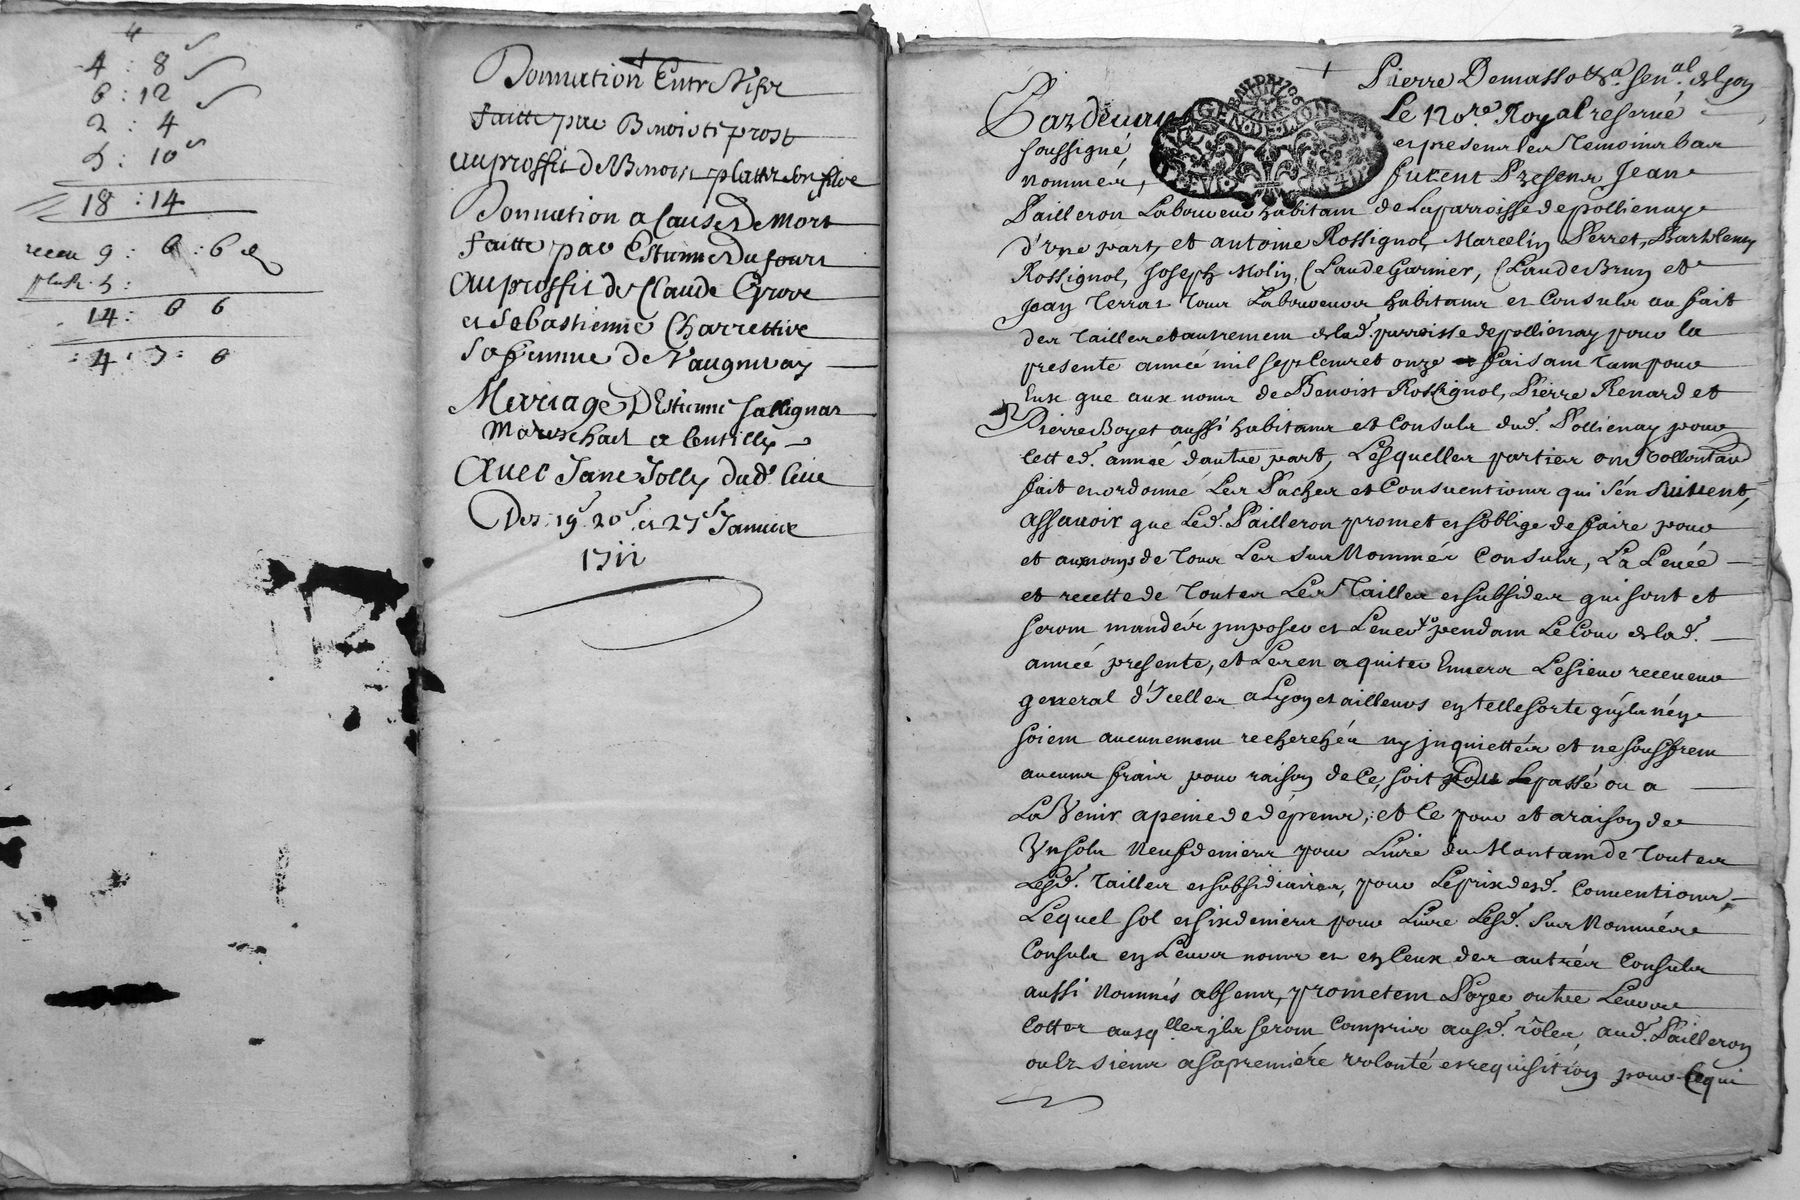 4
4 : 8
6 : 12
2 : 4
5 : 10
18 : 14
receu 9 : 6 : 6 d
plus 5 :
14 : 6 6
4 : 7 : 6
Donnation Entre Vifz
faitte par Benoiste prost
au proffit de Benoist platte son filz
Donnation a Cause de Mort
faitte par Estienne Dufourt
au proffit de Claude Grove
et Sebastienne Charrettive
Sa femme de Vaugneray
Mariage d'Estienne Sallignat
Mareschal a lentilly
avec Jane Jolly dud. lieu
Des 19e 20e et 27e Janvier
1711
Pierre Demasso &a. sen.al de Lyon
Pardevant Le No.re Royal reservé
soussigné et presens les Temoins bas
nommés, furent Presens Jean
Pailleron Laboureur habitant de La parroisse de pollienay
d'une part, et antoine Rossignol, Marcelin Perret, Barthlemy
Rossignol, Joseph Molin, Claude Garnier, Claude Brun et
Jean Terras Tous Laboureurs habitans et Consuls au fait
des Tailles et autrement de lad. parroisse de pollienay pour la
presente année mil sept Cent et onze faisant Tant pour
Eux que aux noms de Benoist Rossignol, Pierre Renard et
Pierre Boyet aussi habitans et Consuls dud. Pollienay pour
Cette d. année d'autre part, Lesquelles parties ont Vollontaire
fait et ordonné Les Paches et Conventions qui s'en suivent,
assavoir que Led. Pailleron promet et s'oblige de faire pour
et aux noms de Tous Les sus Nommés Consuls, La Levée
et recette de Toutes Les Tailles et subsides qui sont et
seront mandés imposés et Levés pendant Le Cour de lad.
année presente, et Les en aquiter Envers Le sieur receveur
general d'Icelles a Lyon et ailleurs en telle sorte qu'ils n'en
soient aucunement recherchés ny inquiettés et ne souffrent
aucuns frais pour raison de Ce, soit pour Le passé ou a
La Venir a peine de dépens, et Ce pour et a raison de
Un sols Neuf deniers pour Livre du Montant de Toutes
Lesd. Tailles et subsidiaires, pour Le prix desd. Conventions,
Lequel sol et six deniers pour Livre Lesd. sus Nommés
Consuls en Leurs noms et en Ceux des autres Consuls
aussi Nommés absens, prometent Payer outre Leurs
Cottes ausq.lles ils seront Compris ausd. rôles, aud. Pailleron
ou les siens a sa première volonté et requisition pour Ce qui